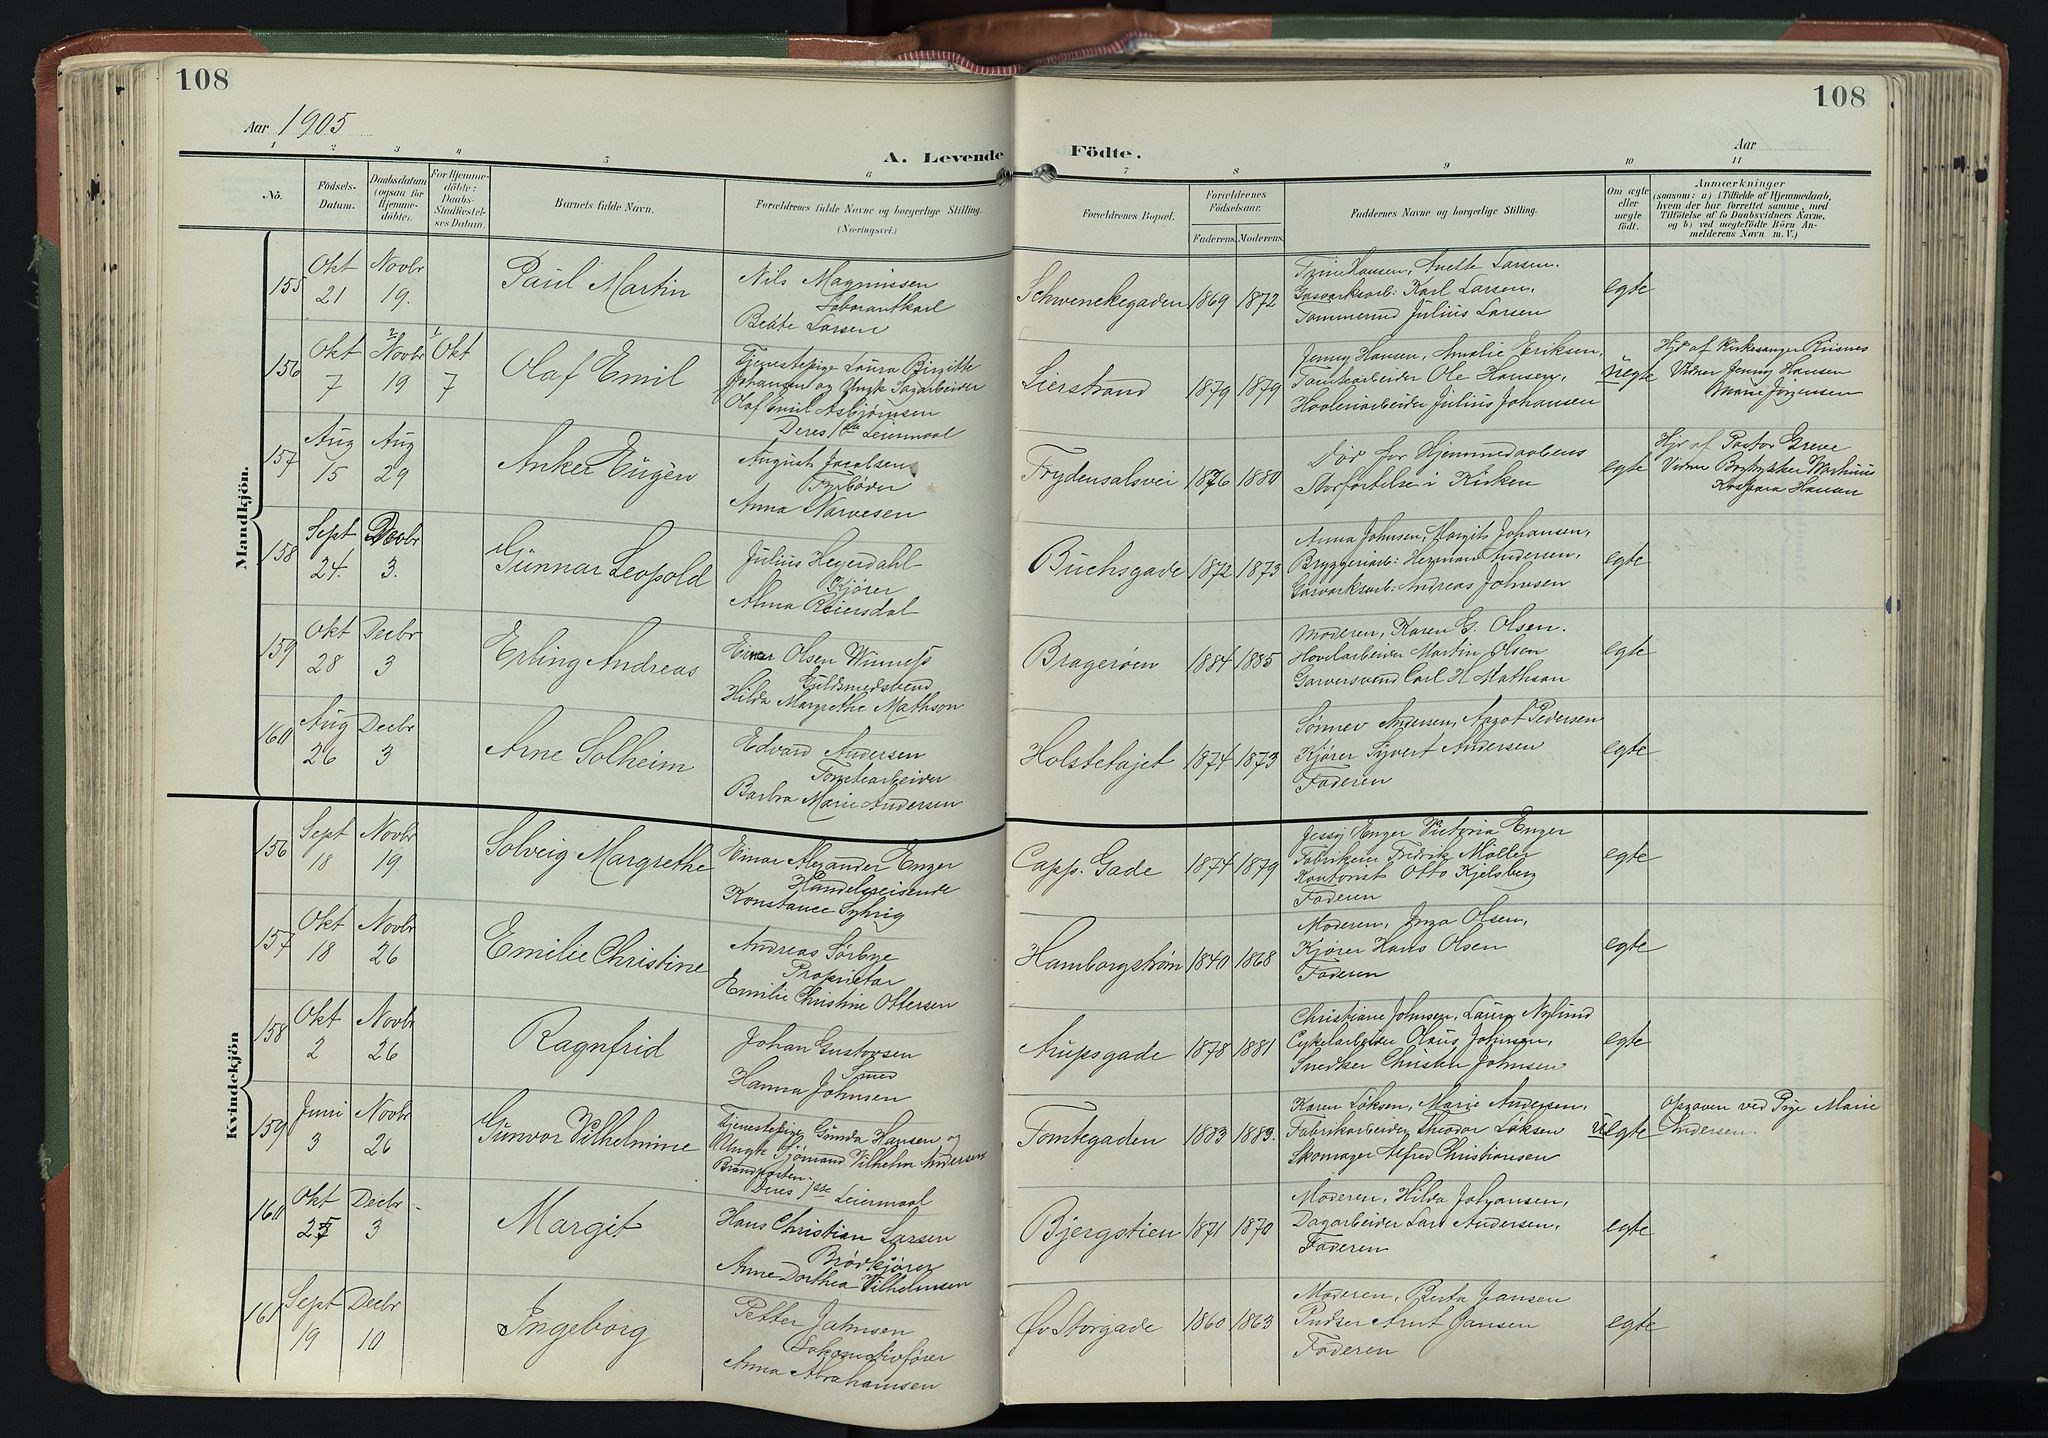 108
108
Aar 1905
Aar
A. Levende Födte.
1 2 3 4 5 6 7 8 9 10 11
No.
Födsels-Datum.
Daabsdatum (ogsaa for Hjemmedöbte).
For Hjemmedöbte: Daabs-Stadfæstelses Datum.
Barnets fulde Navn.
Forældrenes fulde Navne og borgerlige Stilling.
(Næringsvei.)
Forældrenes Bopæl.
Forældrenes Födselsaar.
Faderens. Moderens.
Faddernes Navne og borgerlige Stilling.
Om ægte eller uægte födt.
Anmærkninger
(saasom: a) i Tilfælde af Hjemmedaab, hvem der har forrettet samme, med Tilföielse af to Daabsvidners Navne, og b) ved uægtefödte Börn Anmelderens Navn m. V.)
Mandkjön.
155 Okt 21 Novbr 19. Paul Martin
Nils Magnussen
Laborantkarl
Beate Larsen
Schwenckegaden 1869 1872
Trine Hansen, Anette Larsen.
Gasværksarb: Karl Larsen,
Tømmermd Julius Larsen
egte
156 Okt 7 Novbr 19 Okt 7 Olaf Emil
Tjenestepige Laura Birgitte
Johansen og Ungk Sagarbeider
Olaf Emil Asbjørnsen
Deres 1ste Leiermaal
Lierstrand 1879 1879
Jenny Hansen, Amalie Eriksen,
Tomtearbeider Ole Hansen,
Høvleriarbeider Julius Johansen
Uegte
Hjd af Kirkesanger Riisnes
Vidner Jenny Hansen
Marie Jørgensen
157 Aug 15 Aug 29 Anker Eugen
August Jacobsen
Fyrbøder
Anna Narvesen
Frydensalsvei 1876 1880
Død før Hjemmedaabens
Stadfæstelse i Kirken
egte
Hjd af Pastor Greve
Vidner Bogtrykker Martinius
Kaspara Hansen
158 Sept 24. Decbr 3. Gunnar Leopold
Julius Heyerdahl
Kjører
Alma Reiersdal
Buchsgade 1872 1873
Anna Johnsen, Margit Johansen,
Bryggeriarb: Herman Andersen,
Gasværksarb: Andreas Johnsen
egte
159 Okt 28 Decbr 3 Erling Andreas
Einar Olsen Winness
Guldsmedsvend
Hilda Margrethe Mathson
Bragerøen 1884 1885
Moderen, Karen G. Olsen.
Høvelarbeider Martin Olsen
Garversvend Carl H Mathson
egte
160 Aug 26 Decbr 3 Arne Solheim
Edvard Andersen
Tomtearbeider
Barbra Marie Andersen
Holstetøjet 1874 1873
Sønnev Andersen, Aagot Pedersen
Kjører Syvert Andersen
Faderen
egte
Kvindekjön
156 Sept 18 Novbr 19. Solveig Margrethe
Einar Alexander Enger
Handelsreisende
Konstance Syhrig
Capp. Gade 1874 1879
Jessy Enger Victoria Enger
Fabrikeier Fredrik Møller
Kontorist Otto Kjelsberg
Faderen
egte
157 Okt 18 Novbr 26 Emilie Christine
Andreas Sørbye
Proprietær
Emilie Christine Ottersen
Hamborgstrøm 1840 1868
Moderen, Inga Olsen,
Kjører Hans Olsen
Faderen
egte
158 Okt 2 Novbr 26 Ragnfrid
Johan Gustavsen
Smed
Hanna Johnsen
Arupsgade 1878 1881
Christiane Johnsen, Laura Nylund
Cykelarbeider Olaus Johnsen,
Snedker Christen Johnsen
egte
159 Juni 3 Novbr 26 Gunvor Vilhelmine
Tjenestepige Gunda Hansen og
Ungk Sjømand Vilhelm Andersen
Brandposten.
Deres 1ste Leiermaal
Tomtegaden 1883 1883.
Karen Løksen, Marie Andersen,
Fabrikarbeider Theodor Løksen
Skomager Alfred Christiansen
Uegte
Opgaven ved Pige Marie
Andersen.
160 Okt 25 Decbr 3 Margit
Hans Christian Larsen
Brødkjører
Anne Dorthea Vilhelmsen
Bjergstien 1871 1870
Moderen, Hilda Johansen,
Dagarbeider Lars Andersen,
Faderen
egte
161 Sept 19 Decbr 10 Ingeborg
Petter Johnsen
Lokomotivfører
Anna Abrahamsen
Øv Storgade 1860 1863
Moderen, Berta Jansen
Pudser Arnt Jansen
Faderen
egte